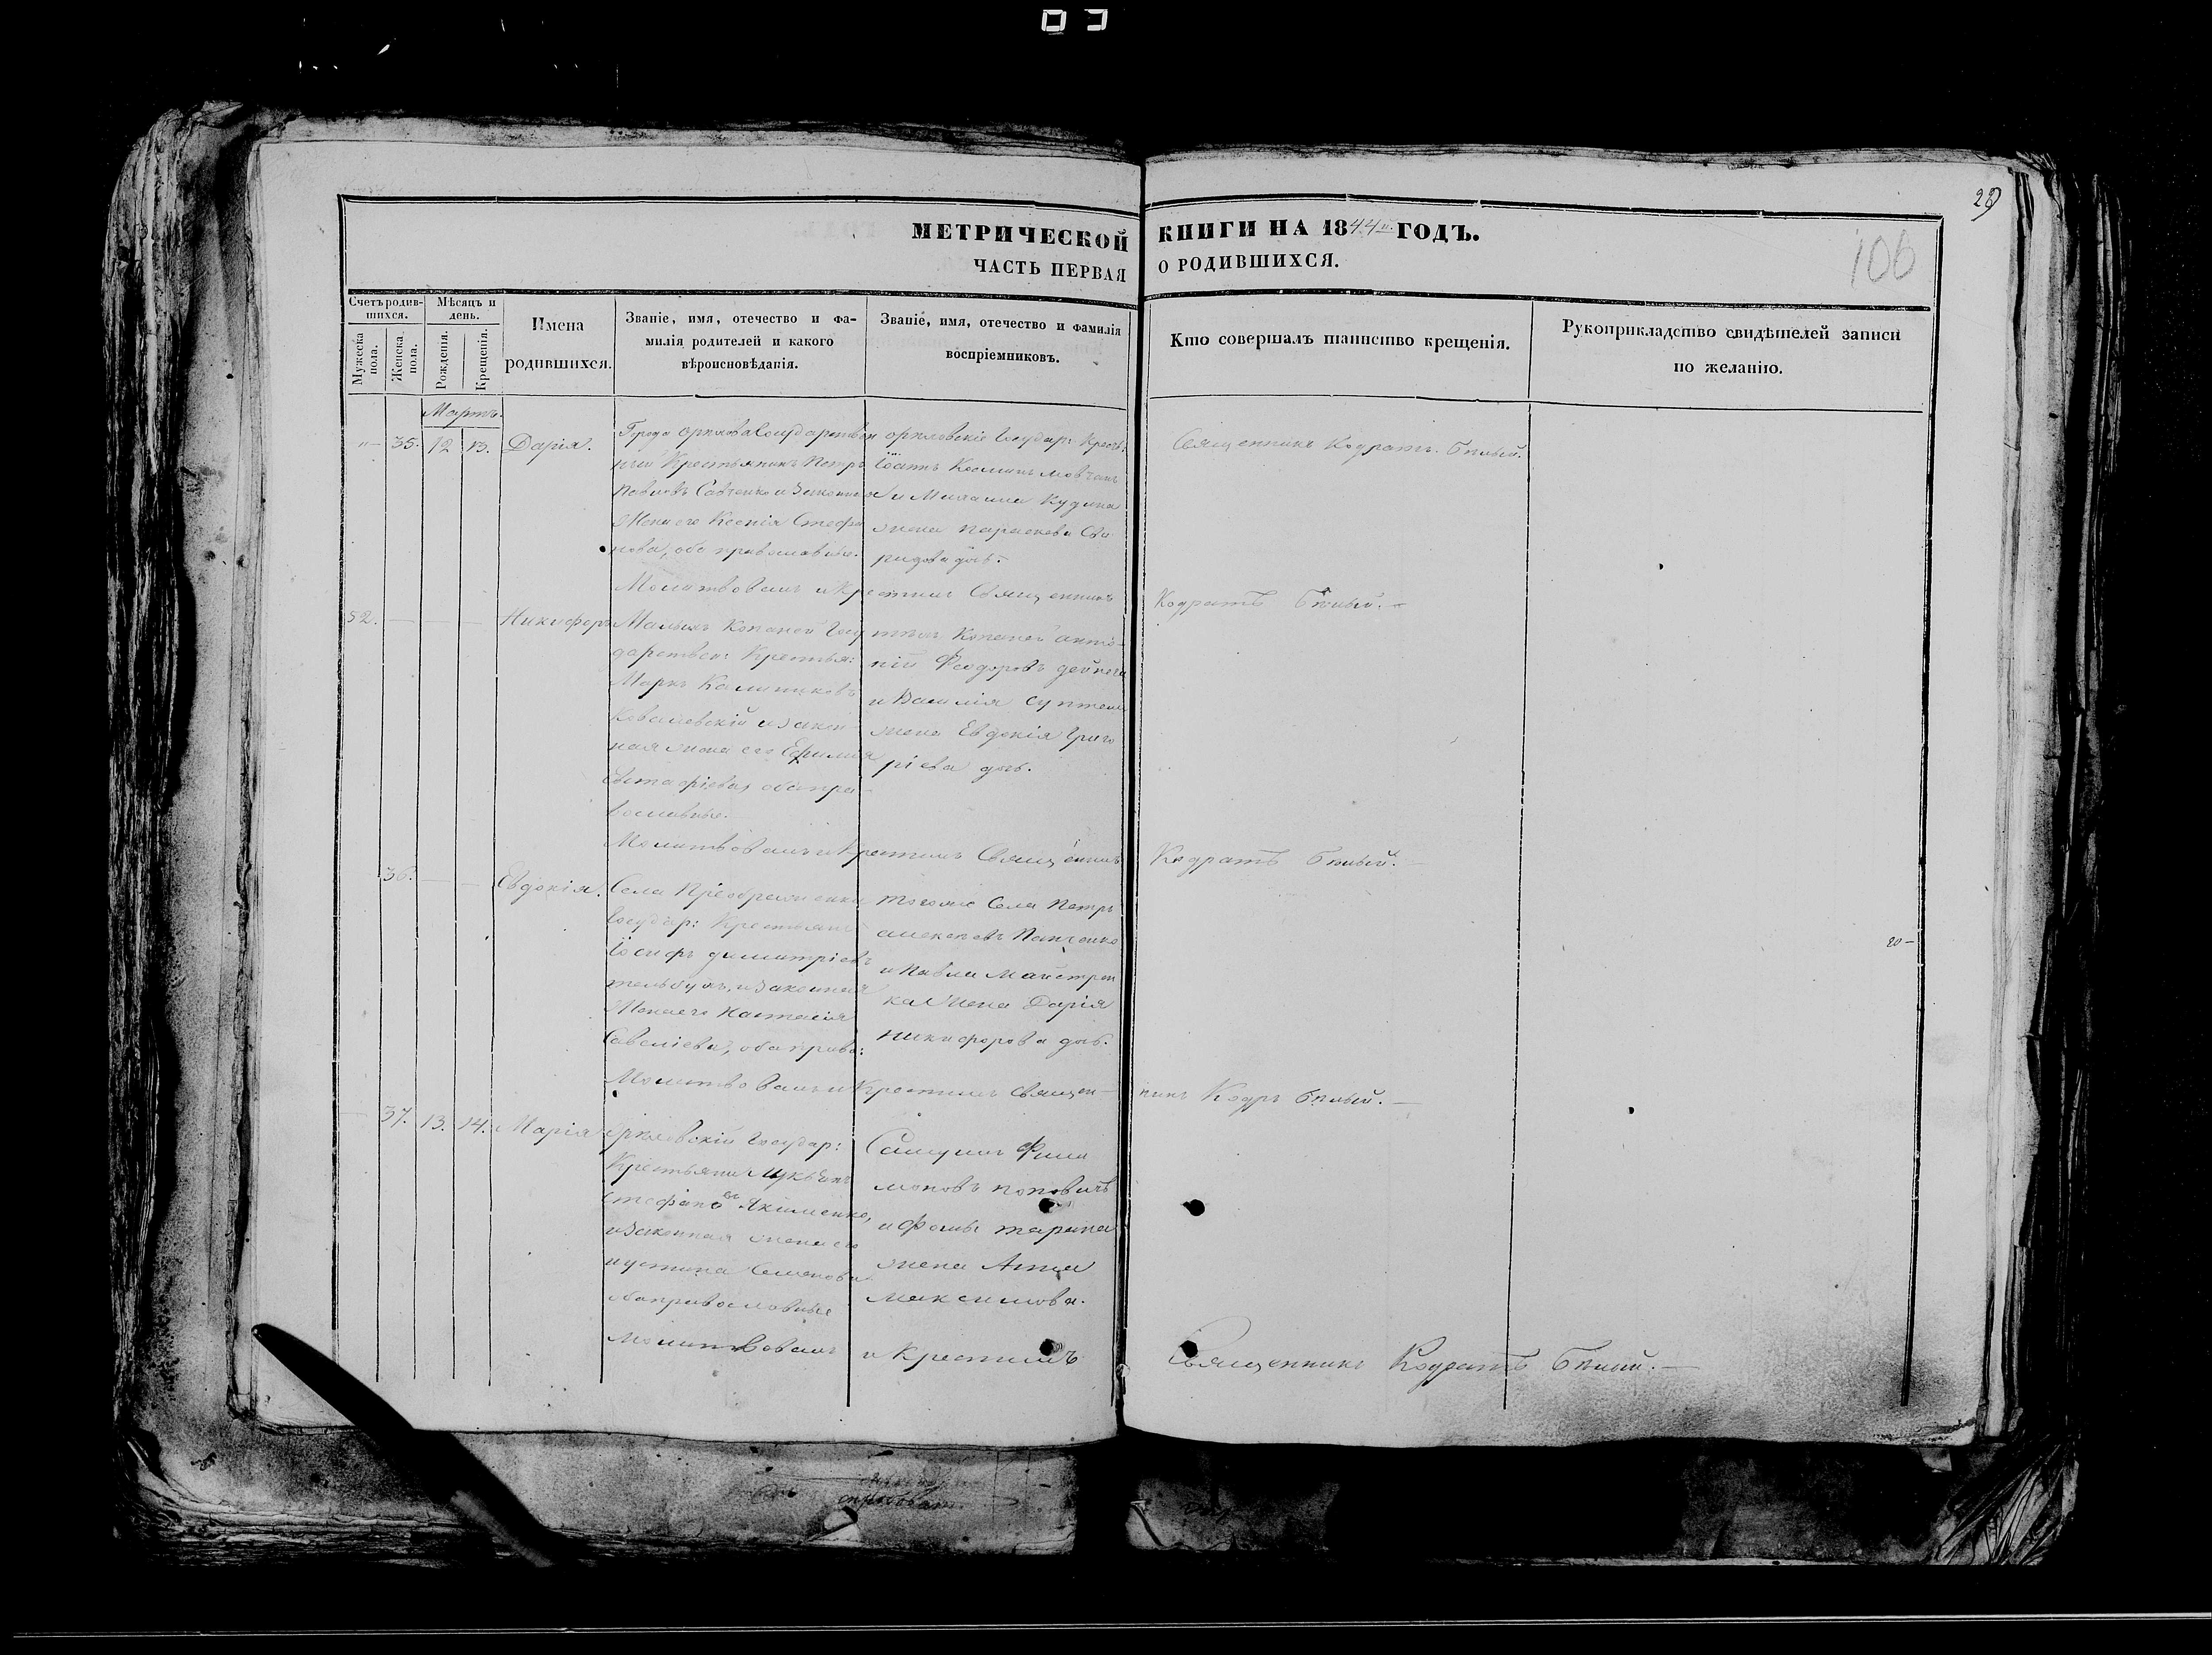 29
106
МЕТРИЧЕСКОЙ КНИГИ НА 1844й ГОДЪ.
ЧАСТЬ ПЕРВАЯ О РОДИВШИХСЯ.
Счетъ родившихся.
Мужеска пола.
Женска пола.
Мѣсяцъ и день.
Рожденія.
Крещенія.
Имена родившихся.
Званіе, имя, отечество и фамилія родителей и какого вѣроисповѣданія.
Званіе, имя, отечество и фамилія воспріемниковъ.
Кто совершалъ таинство крещенія.
Рукоприкладство свидѣтелей записи по желанію.
Мартъ.
35. 12 13. Дарія.
Города Орѣхова Государствен
ный Крестьянинъ Петръ
Павловъ Савченко и Законная
Жена его Ксенія Стефа
нова, оба православные.
орѣховскіе Государ: Крест:
Іоаннъ Косминъ Мовчанъ
и Михаила Кудина
жена Параскева Сви
ридова дочь.
Священникъ Кодратъ Бѣлый.
Молитвовалъ и Крестилъ Священникъ Кодратъ Бѣлый.
52. Никифоръ
Малыхъ Копаней Госу
дарствен: Крестьян:
Маркъ Калиниковъ
Ковалевскій и закон
ная жена его Ефимія
Евстафіева, оба пра
вославные.
тѣхъ Копаней Анто
ній Феодоровъ Дейнега
и Василія
жена Евдокія Григо
ріева дочь.
Молитвовалъ и Крестилъ Священникъ Кодратъ Бѣлый.
36. Евдокія.
Села Преображенки
Государ: Крестьянинъ
Іосифъ Димитріевъ
и Законная
Жена его Настасія
Савеліева, оба право:
тогоже Села Петръ
Алексѣевъ Панченко
и Павла Майстрен
ка Жена Дарія
Никифорова дочь.
20 —
Молитвовалъ и Крестилъ Священ
никъ Кодр: Бѣлый.
37. 13. 14. Марія
Орѣховскій Государ:
Крестьянинъ Лукьянъ
Стефановъ Якименко,
и Законная жена его
Иустина Семенова
оба православные
Самуилъ Фили
моновъ Поповичъ
и Фомы Тарана
жена Анна
Максимова.
Молитвовалъ и Крестилъ Священникъ Кодратъ Бѣлый.